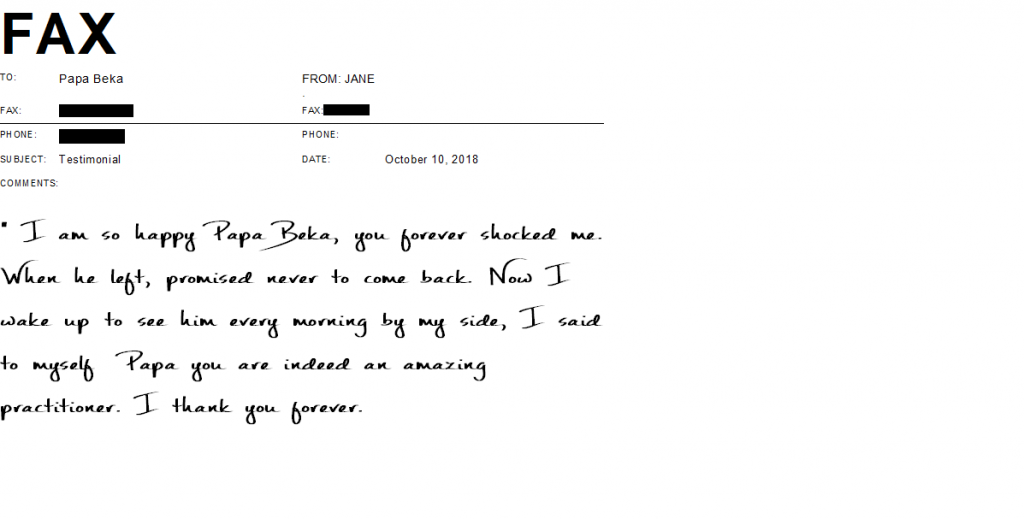 FAX
TO: Papa Beka FROM: JANE
.
FAX: FAX:
PHONE: PHONE:
SUBJECT: Testimonial DATE: October 10, 2018
COMMENTS:
" I am so happy Papa Beka, you forever shocked me.
When he left, promised never to come back. Now I
wake up to see him every morning by my side, I said
to myself Papa you are indeed an amazing
practitioner. I thank you forever.